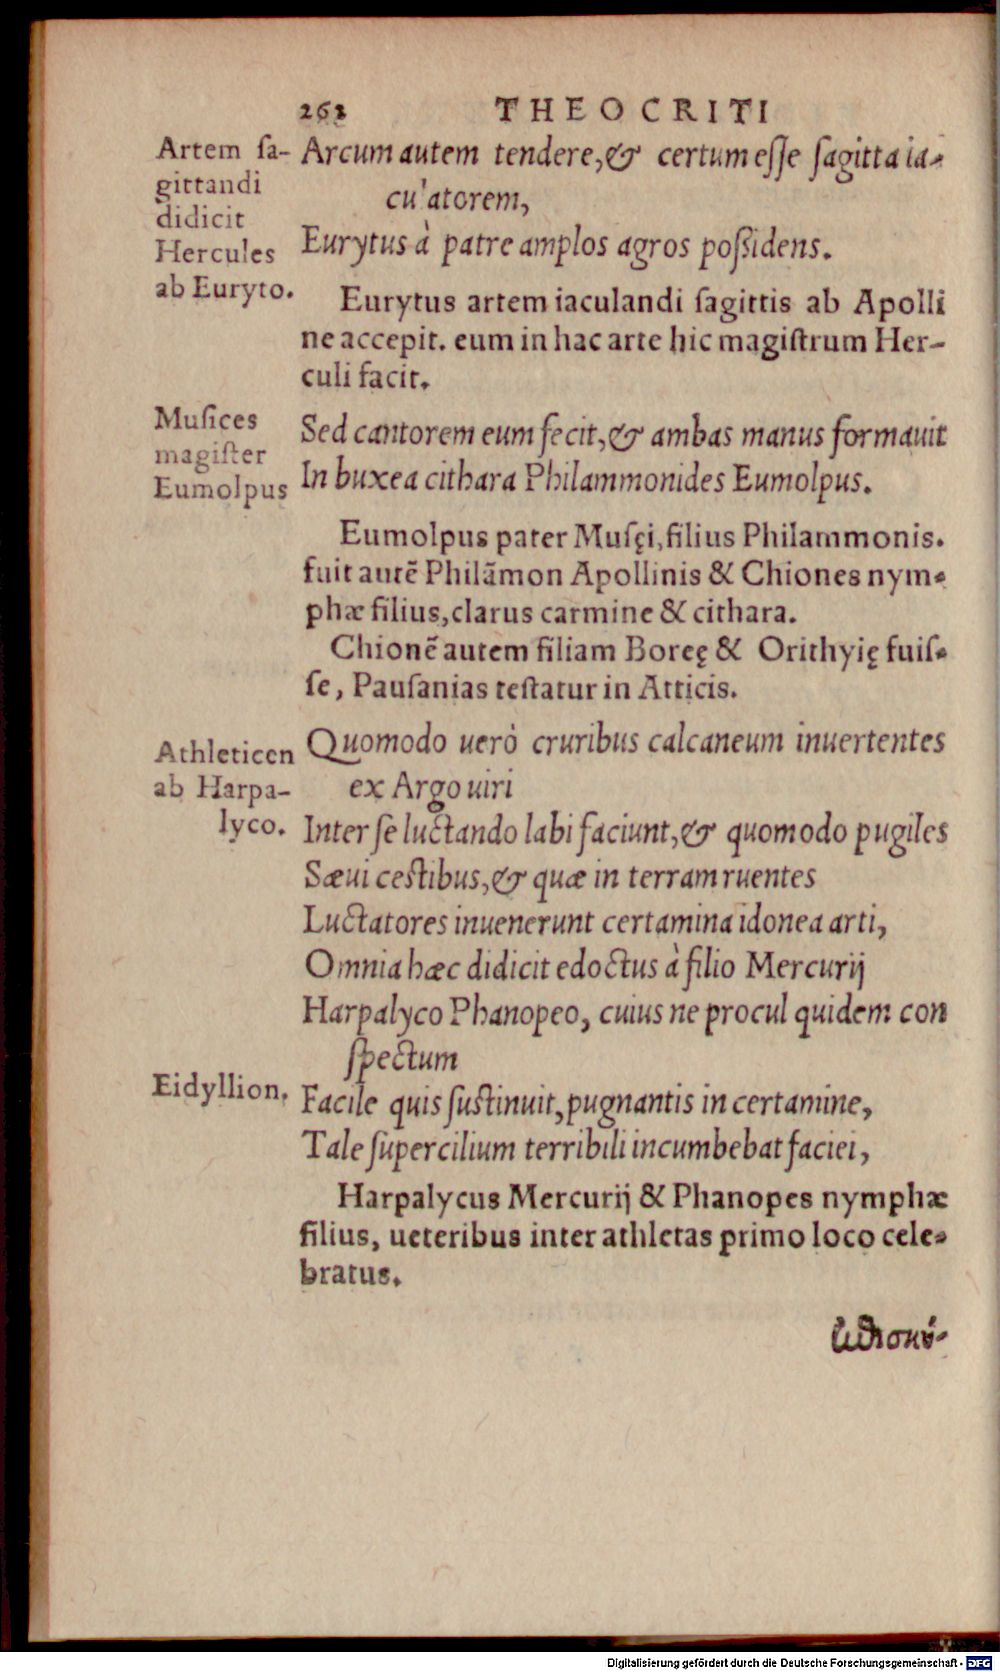 262 THEOCRITI
Artem sa-
gittandi
didicit
Hercules
ab Euryto.
Arcum autem tendere, & certum esse sagitta ia-
cu'atorem,
Eurytus à patre amplos agros possidens.
Eurytus artem iaculandi sagittis ab Apolli
ne accepit. eum in hac arte hic magistrum Her-
culi facit.
Musices
magister
Eumolpus
Sed cantorem eum fecit, & ambas manus formauit
In buxea cithara Philammonides Eumolpus.
Eumolpus pater Musęi, filius Philammonis.
fuit autē Philāmon Apollinis & Chiones nym-
phæ filius, clarus carmine & cithara.
Chionē autem filiam Boreę & Orithyię fuis-
se, Pausanias testatur in Atticis.
Athleticen
ab Harpa-
lyco.
Quomodo uerò cruribus calcaneum inuertentes
ex Argo uiri
Inter se luctando labi faciunt, & quomodo pugiles
Sæui cestibus, & quæ in terram ruentes
Luctatores inuenerunt certamina idonea arti,
Omnia hæc didicit edoctus à filio Mercurij
Harpalyco Phanopeo, cuius ne procul quidem con
spectum
Eidyllion.
Facile quis sustinuit, pugnantis in certamine,
Tale supercilium terribili incumbebat faciei,
Harpalycus Mercurij & Phanopes nymphæ
filius, ueteribus inter athletas primo loco cele-
bratus.
Digitalisierung gefördert durch die Deutsche Forschungsgemeinschaft - DFG